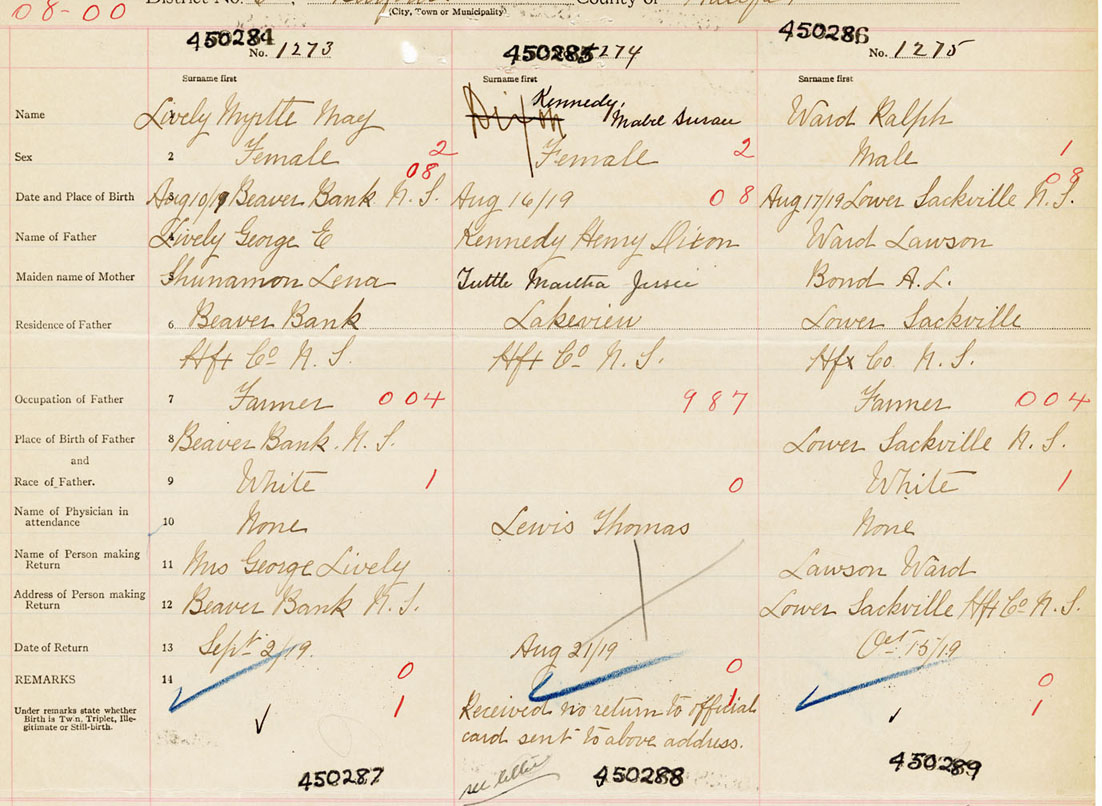 08-00 District No. County of
(City, Town or Municipality)
450284 450285 450286
No. 1273 274 No. 1275
Surname first Surname first Surname first
Name 1 Lively Myrtte May Dixon Kennedy, Mabel Susau Ward Ralph
Sex 2 Female 2 Female 2 Male 1
08 08
Date and Place of Birth 3 Aug 10/19 Beaver Bank N.S. Aug 16/19 08 Aug 17/19 Lower Sackville N.S.
Name of Father 4 Lively George E Kennedy Henry Dixon Ward Lawson
Maiden name of Mother 5 Shunamon Lena Tuttle Martha Jessie Bond A.L.
Residence of Father 6 Beaver Bank Lakeview Lower Sackville
Hfx Co N.S. Hfx Co N.S. Hfx Co. N.S.
Occupation of Father 7 Farmer 004 987 Farmer 004
Place of Birth of Father 8 Beaver Bank. N.S. Lower Sackville N.S.
and
Race of Father. 9 White 1 0 White 1
Name of Physician in
attendance 10 None Lewis Thomas None
Name of Person making
Return 11 Mrs George Lively Lawson Ward
Address of Person making
Return 12 Beaver Bank N.S. Lower Sackville Hfx Co N.S.
Date of Return 13 Sept 2/19. Aug 21/19 Oct 15/19
REMARKS 14 0 0 0
Under remarks state whether
Birth is Twin, Triplet, Ille-
gitimate or Still-birth. 1 Received no return to official 1 1
card sent to above address.
see letter
450287 450288 450289